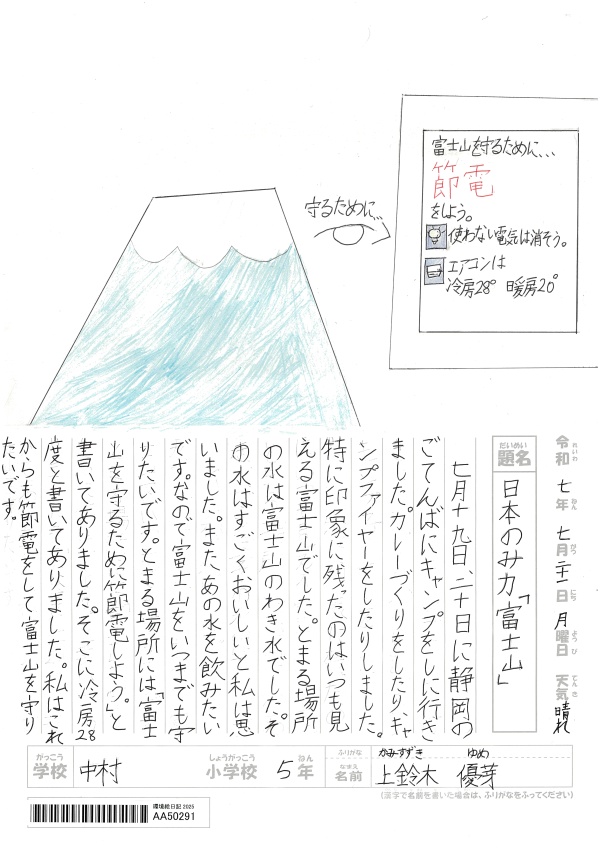 富士山を守るために、、、
節電
をしよう。
使わない電気は消そう。
エアコンは
冷房28° 暖房20°
守るために、、
令和七年七月二十一日月曜日 天気 晴れ
れいわ ねん がつ にち ようび てんき
だいめい
題名
日本のみ力「富士山」
七月十九日、二十日に静岡の
ごてんばにキャンプをしに行き
ました。カレーづくりをしたり、キャ
ンプファイヤーをしたりしました。
特に印象に残ったのはいつも見
える富士山でした。とまる場所
の水は富士山のわき水でした。そ
の水はすごくおいしいと私は思
いました。また、あの水を飲みたい
です。なので富士山をいつまでも守
りたいです。とまる場所には「富士
山を守るために節電しよう。」と
書いてありました。そこに冷房28
度と書いてありました。私はこれ
からも節電をして富士山を守り
たいです。
がっこう しょうがっこう ねん ふりがな かみすずき ゆめ
学校 中村 小学校 5年 なまえ 名前 上鈴木 優芽
(漢字で名前を書いた場合は、ふりがなをふってください)
環境絵日記 2025
AA50291